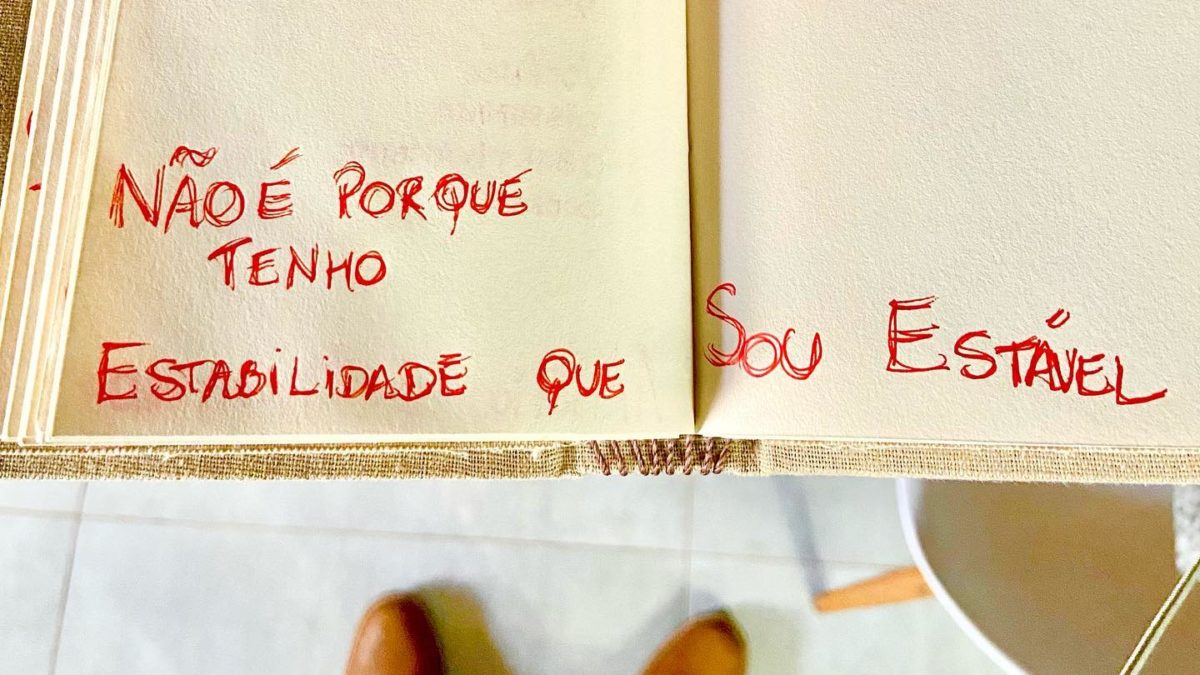 NÃO É PORQUE
TENHO
ESTABILIDADE QUE SOU ESTÁVEL